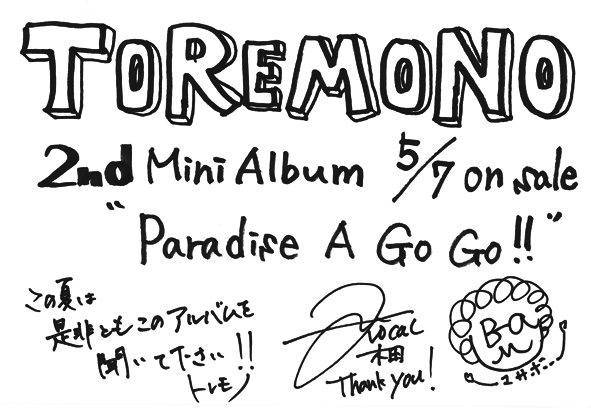 TOREMONO
2nd Mini Album 5/7 on sale
"Paradise A Go Go!!"
この夏は
是非ともこのアルバムを
聞いて下さい!!
トレモノ
Vocal
木田
Thank you!